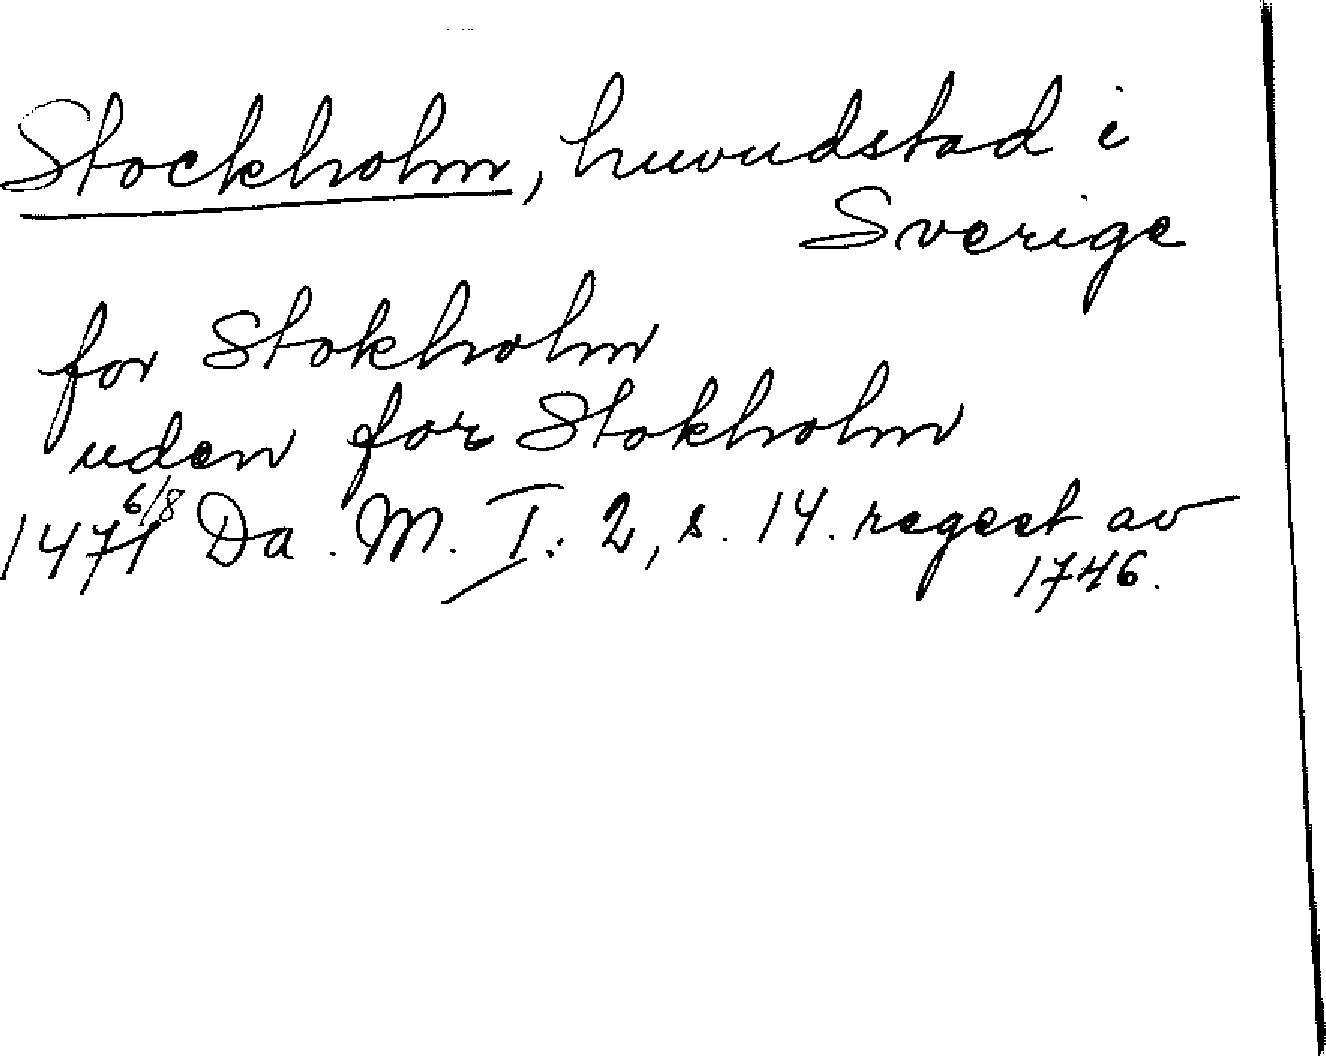 Stockholm, huvudstad i
Sverige
for Stokholm
uden for Stokholm
1471 6/8 Da. M. I: 2, s. 14. regest av
1746.